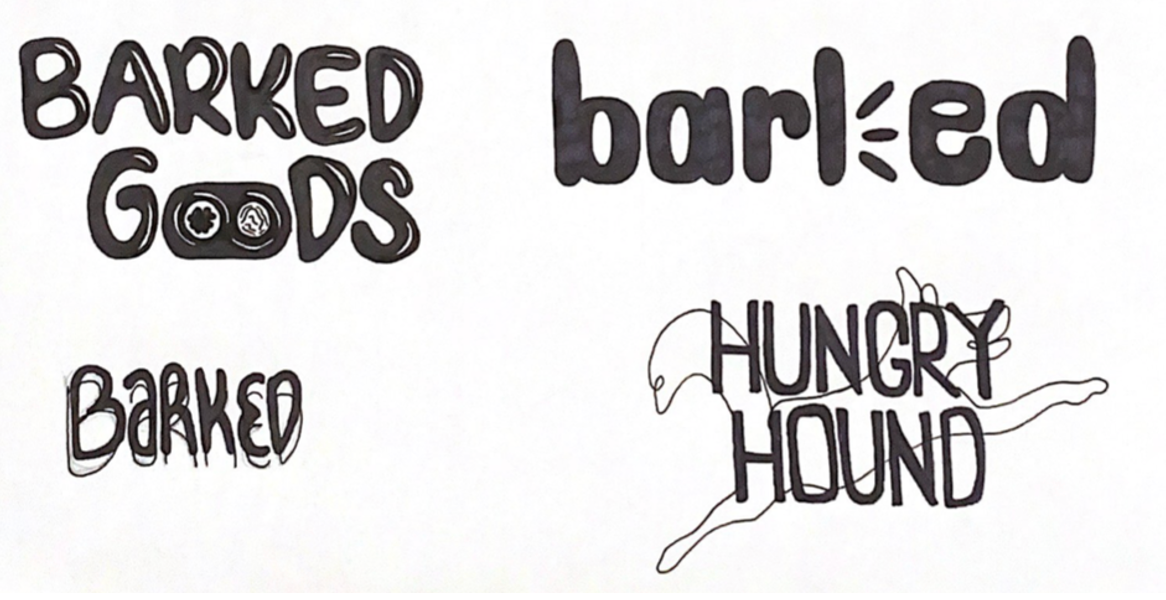 BARKED
GOODS
barked
BaRKED
HUNGRY
HOUND